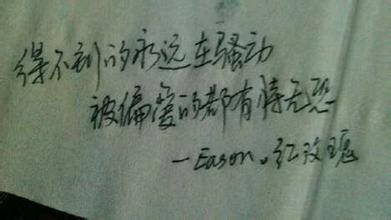 得不到的永远在骚动
被偏爱的都有恃无恐
—Eason。红玫瑰